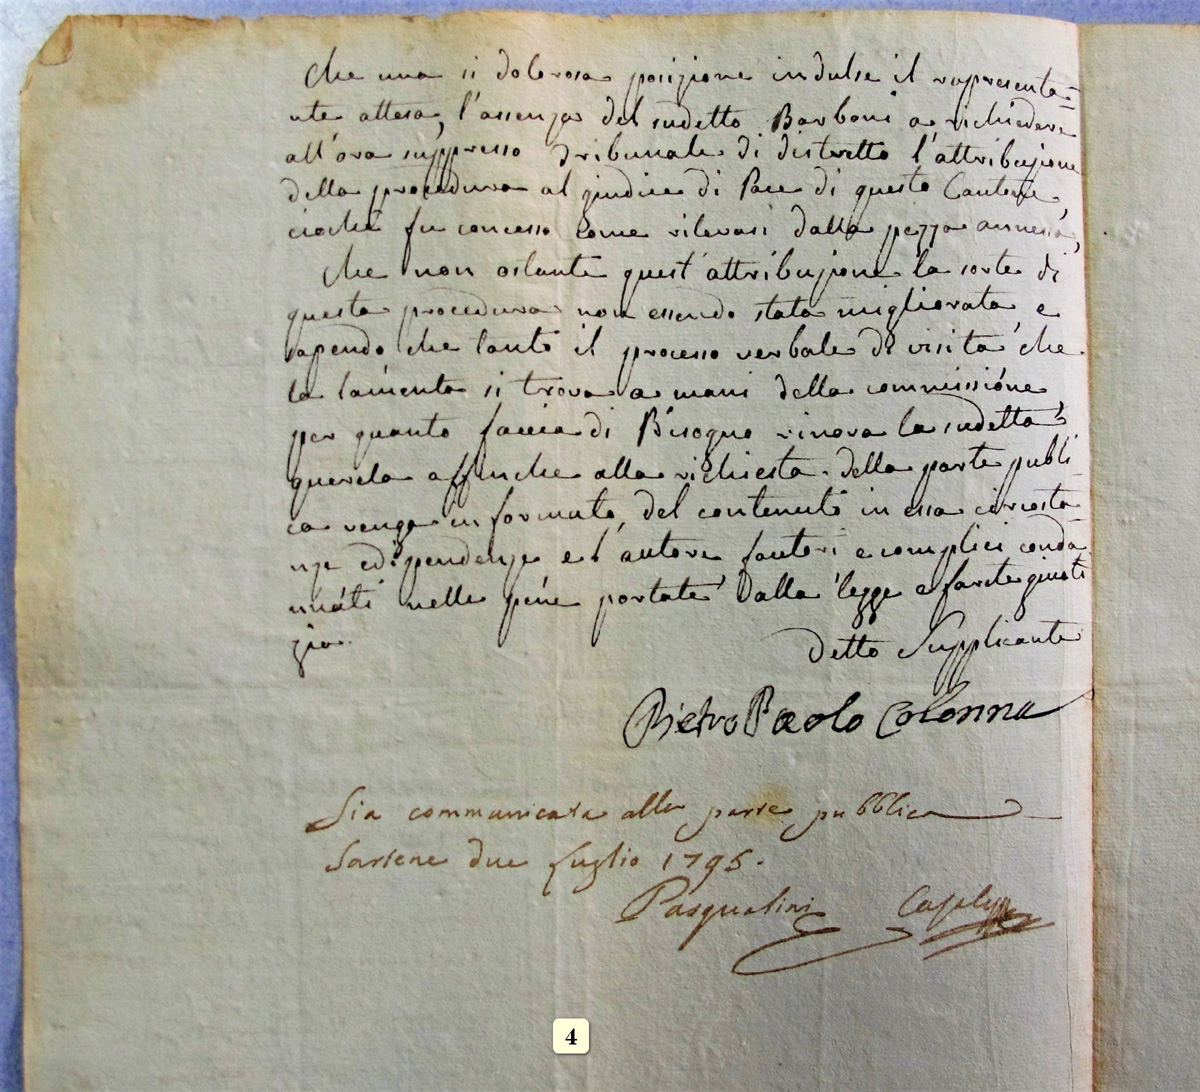 Che una si dolorosa posizione indulse il rapresenta=
nte attesa, l'assenza del sudetto Barboni a richiedere
all'ora suppresso Tribunale di distretto l'attribuzione
della procedura al giudice di Pace di questo Cantone,
ciochè fu concesso come rilevasi dalla pezza annessa,
Che non ostante quest'attribuzione la sorte di
questa procedura non essendo stata migliorata, e
sapendo che tanto il processo verbale di visita che
la lamenta si trova a mani della commissione
per quanto faccia di Bisogno rinova la sudetta
querela affinche alla richiesta della parte publi=
ca venga informato, del contenuto in essa circosta=
nze e dipendenze e l'autore fautori e complici conda
nnati nelle pene portate dalla legge e farete giusti
zia.
Detto Supplicante
Pietro Paolo Colonna
Sia communicata alla parte pubblica
Sartene due luglio 1795.
Pasqualini
4